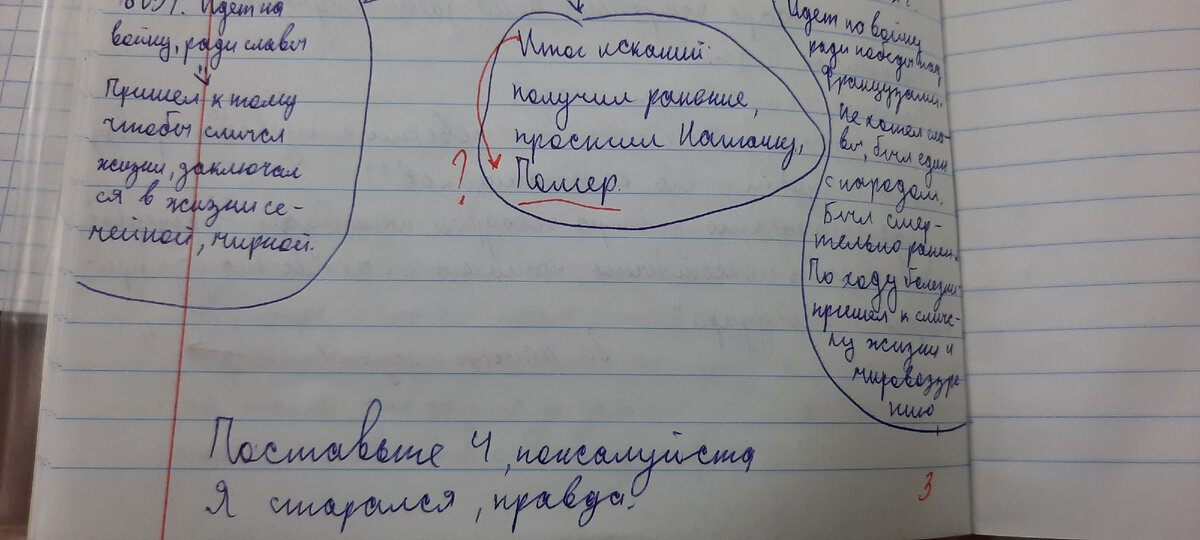 Идет на
войну, ради славы
Пришел к тому
чтобы смысл
жизни, заключал
ся в жизни се-
мейной, мирной.
Итог исканий:
получил ранение,
простил Наташу,
Помер.
?
Идет на войну
ради победы над
французами.
Не хотел сла-
вы, был един
с народом.
Был смер-
тельно ранен.
По ходу болезни
пришел к смыс-
лу жизни и
мировоззре
нию
Поставьте 4, пожалуйста
Я старался, правда.
3